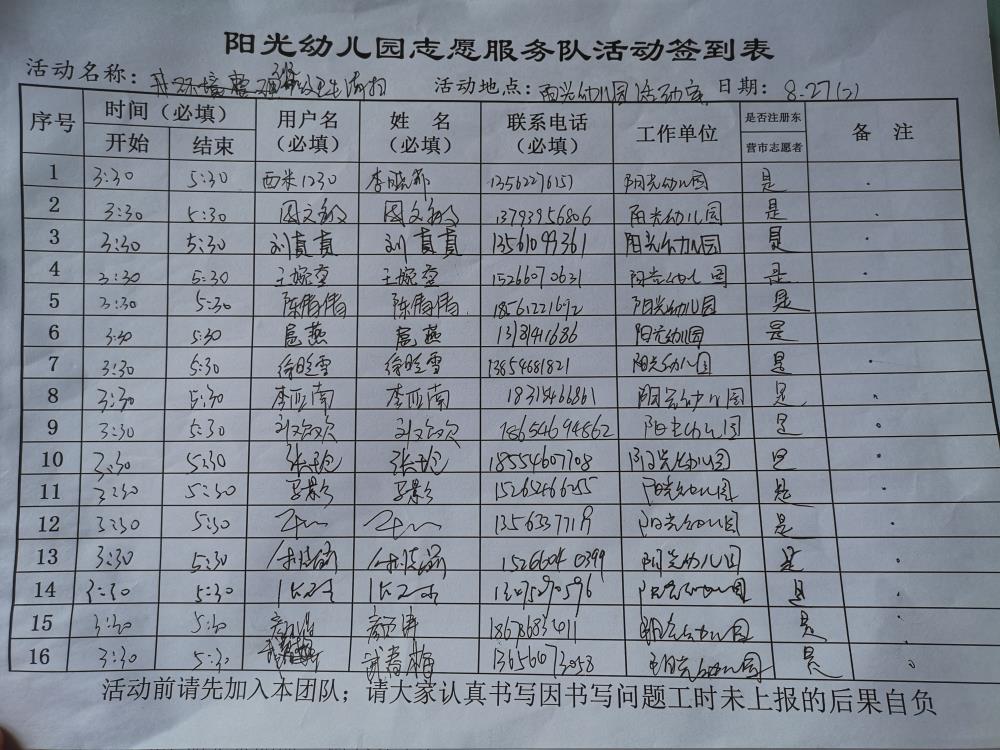 阳光幼儿园志愿服务队活动签到表
活动名称: 环境整理 卫生清扫 活动地点: 阳光幼儿园活动室 日期: 8.27(2)
序号 时间（必填） 用户名（必填） 姓 名（必填） 联系电话（必填） 工作单位 是否注册东营市志愿者 备 注
开始 结束
1 3:30 5:30 西米1230 李晓 1356227615 阳光幼儿园 是
2 3:30 5:30 周文敏 周文敏 13793956806 阳光幼儿园 是
3 3:30 5:30 刘真真 刘真真 13561099361 阳光幼儿园 是
4 3:30 5:30 王婉莹 王婉莹 15266070631 阳光幼儿园 是
5 3:30 5:30 陈倩倩 陈倩倩 18561221692 阳光幼儿园 是
6 3:30 5:30 扈燕 扈燕 13181411686 阳光幼儿园 是
7 3:30 5:30 徐晗雪 徐晗雪 13854681821 阳光幼儿园 是
8 3:30 5:30 李亚南 李亚南 18315466861 阳光幼儿园 是
9 3:30 5:30 刘欢欢 刘欢欢 18654694862 阳光幼儿园 是
10 3:30 5:30 张艳 张艳 18554607708 阳光幼儿园 是
11 3:30 5:30 马影 马影 15265466255 阳光幼儿园 是
12 3:30 5:30 阳光幼儿园 是
13 3:30 5:30 15266040399 阳光幼儿园 是
14 3:30 5:30 阳光幼儿园 是
15 3:30 5:30 阳光幼儿园 是
16 3:30 5:30 武春梅 13656073058 阳光幼儿园 是
活动前请先加入本团队；请大家认真书写因书写问题工时未上报的后果自负